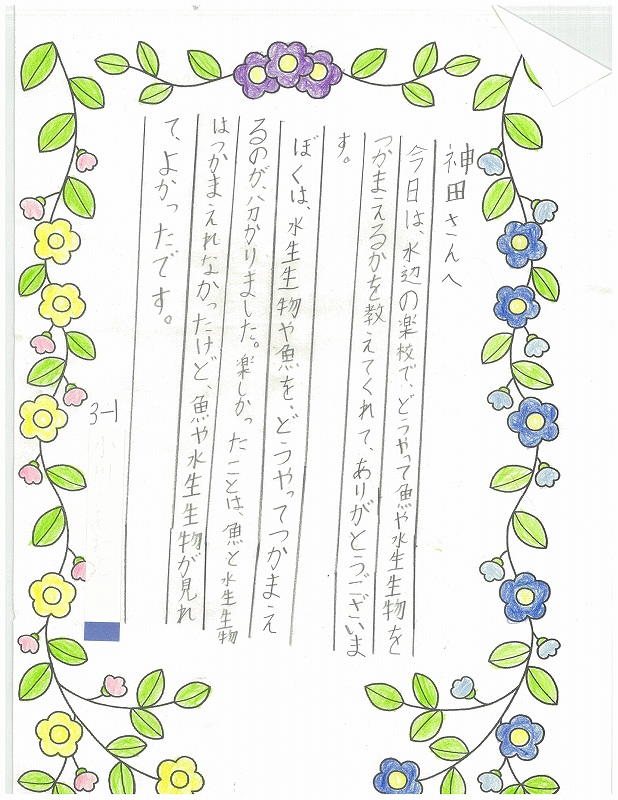 神田さんへ
今日は、水辺の楽校で、どうやって魚や水生生物を
つかまえるかを教えてくれて、ありがとうございま
す。
ぼくは、水生生物や魚を、どうやってつかまえ
るのが、分かりました。楽しかったことは、魚と水生生物
はつかまえれなかったけど、魚や水生生物が見れ
て、よかったです。
3-1